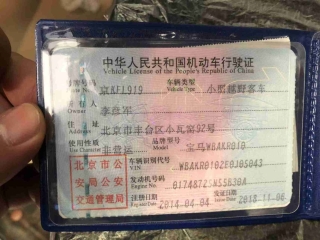 中华人民共和国机动车行驶证
Vehicle License of the People's Republic of China
号牌号码 京KF1919 车辆类型 Vehicle Type 小型越野客车
所有人 李彦军
住址 北京市丰台区小瓦窑92号
使用性质 Use Character 非营运 品牌型号 Model 宝马WBAKR010
北京市公
安局公安
交通管理局
车辆识别代号 VIN WBAKR010ZE0J05043
发动机号码 Engine No. 01748725N55B30A
注册日期 Register Date 2014-04-04 发证日期 Issue Date 2018-11-06